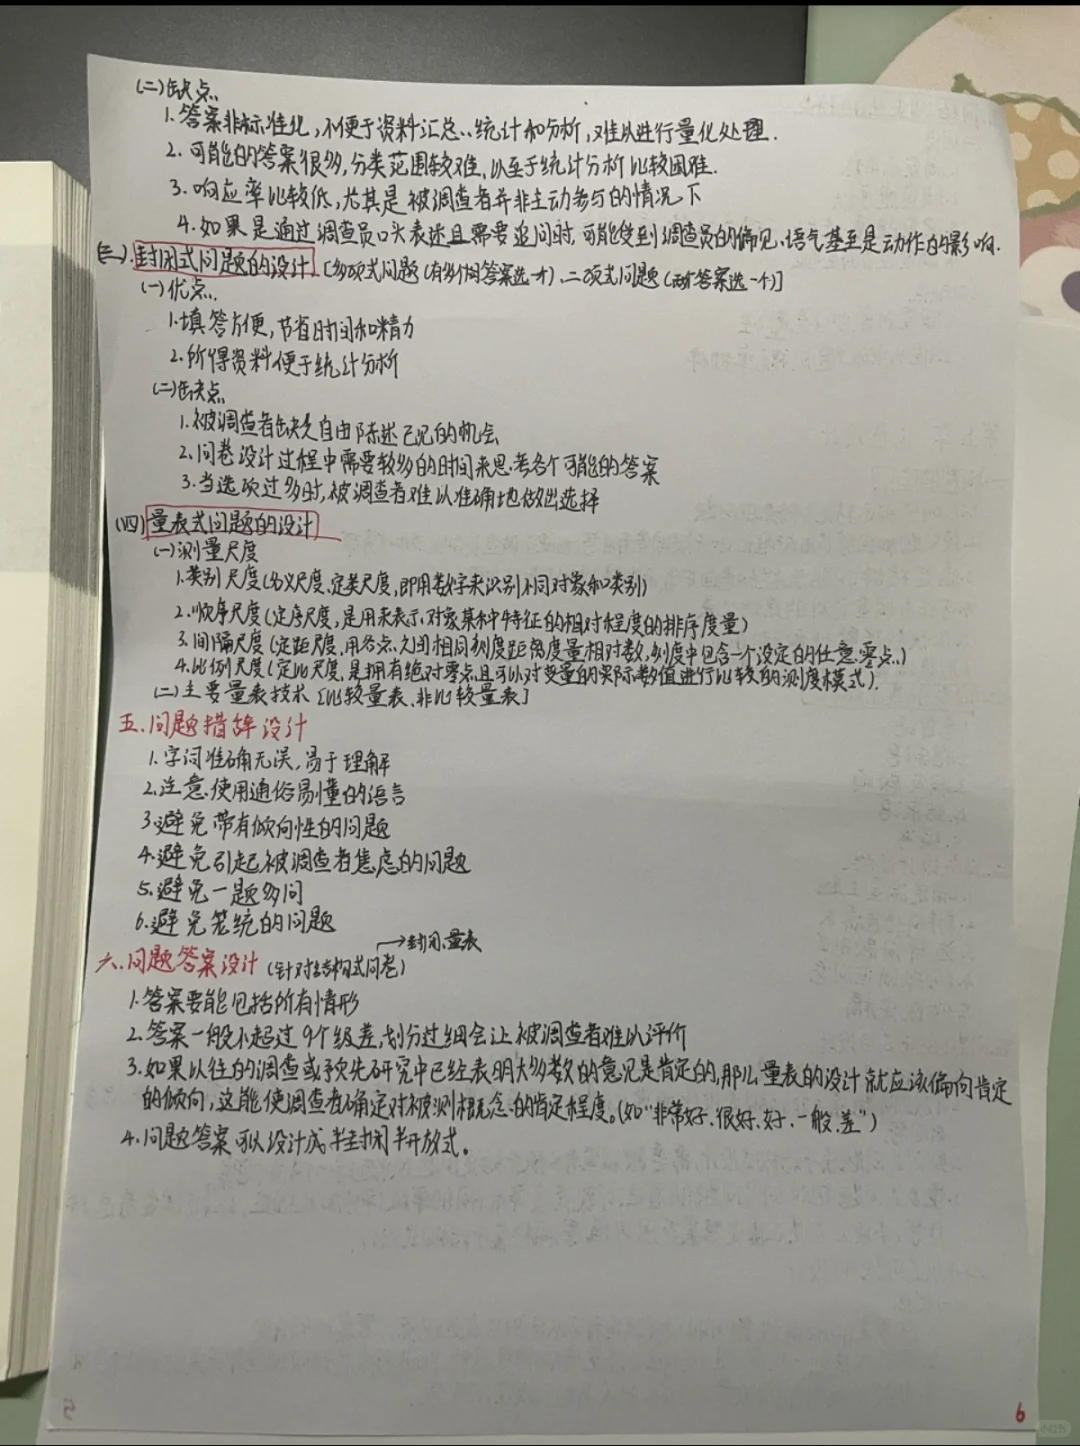 (二)缺点
1.答案非标准化,不便于资料汇总、统计和分析,难以进行量化处理.
2.可能的答案很多,分类范围较难,以至于统计分析比较困难.
3.响应率比较低,尤其是被调查者并非主动参与的情况下
4.如果是通过调查员口头表述且需要追问时,可能受到调查员的偏见、语气甚至是动作的影响.
(三).封闭式问题的设计.[多项式问题(有多个问答案选一个)、二项式问题(两个答案选一个)]
(一)优点
1.填答方便,节省时间和精力
2.所得资料便于统计分析
(二)缺点
1.被调查者缺乏自由陈述己见的机会
2.问卷设计过程中需要较多的时间来思考各个可能的答案
3.当选项过多时,被调查者难以准确地做出选择
(四)量表式问题的设计
(一)测量尺度
1.类别尺度(名义尺度,定类尺度,即用数字来识别不同对象和类别)
2.顺序尺度(定序尺度,是用来表示对象某种特征的相对程度的排序度量)
3.间隔尺度(定距尺度,用各点之间相同刻度距离度量相对数,刻度中包含一个设定的任意零点)
4.比例尺度(定比尺度,是拥有绝对零点,且可以对变量的实际数值进行比较的测度模式).
(二)主要量表技术[比较量表、非比较量表]
五.问题措辞设计
1.字词准确无误,易于理解
2.注意使用通俗易懂的语言
3.避免带有倾向性的问题
4.避免引起被调查者焦虑的问题
5.避免一题多问
6.避免笼统的问题
→封闭、量表
六.问题答案设计(针对结构式问卷)
1.答案要能包括所有情形
2.答案一般不超过9个级差,划分过细会让被调查者难以评价
3.如果以往的调查或预先研究中已经表明大多数的意见是肯定的,那么量表的设计就应该偏向肯定
的倾向,这能使调查者确定对被测概念的肯定程度。(如“非常好、很好、好、一般、差”)
4.问题答案可以设计成半封闭半开放式。
5
6
小红书